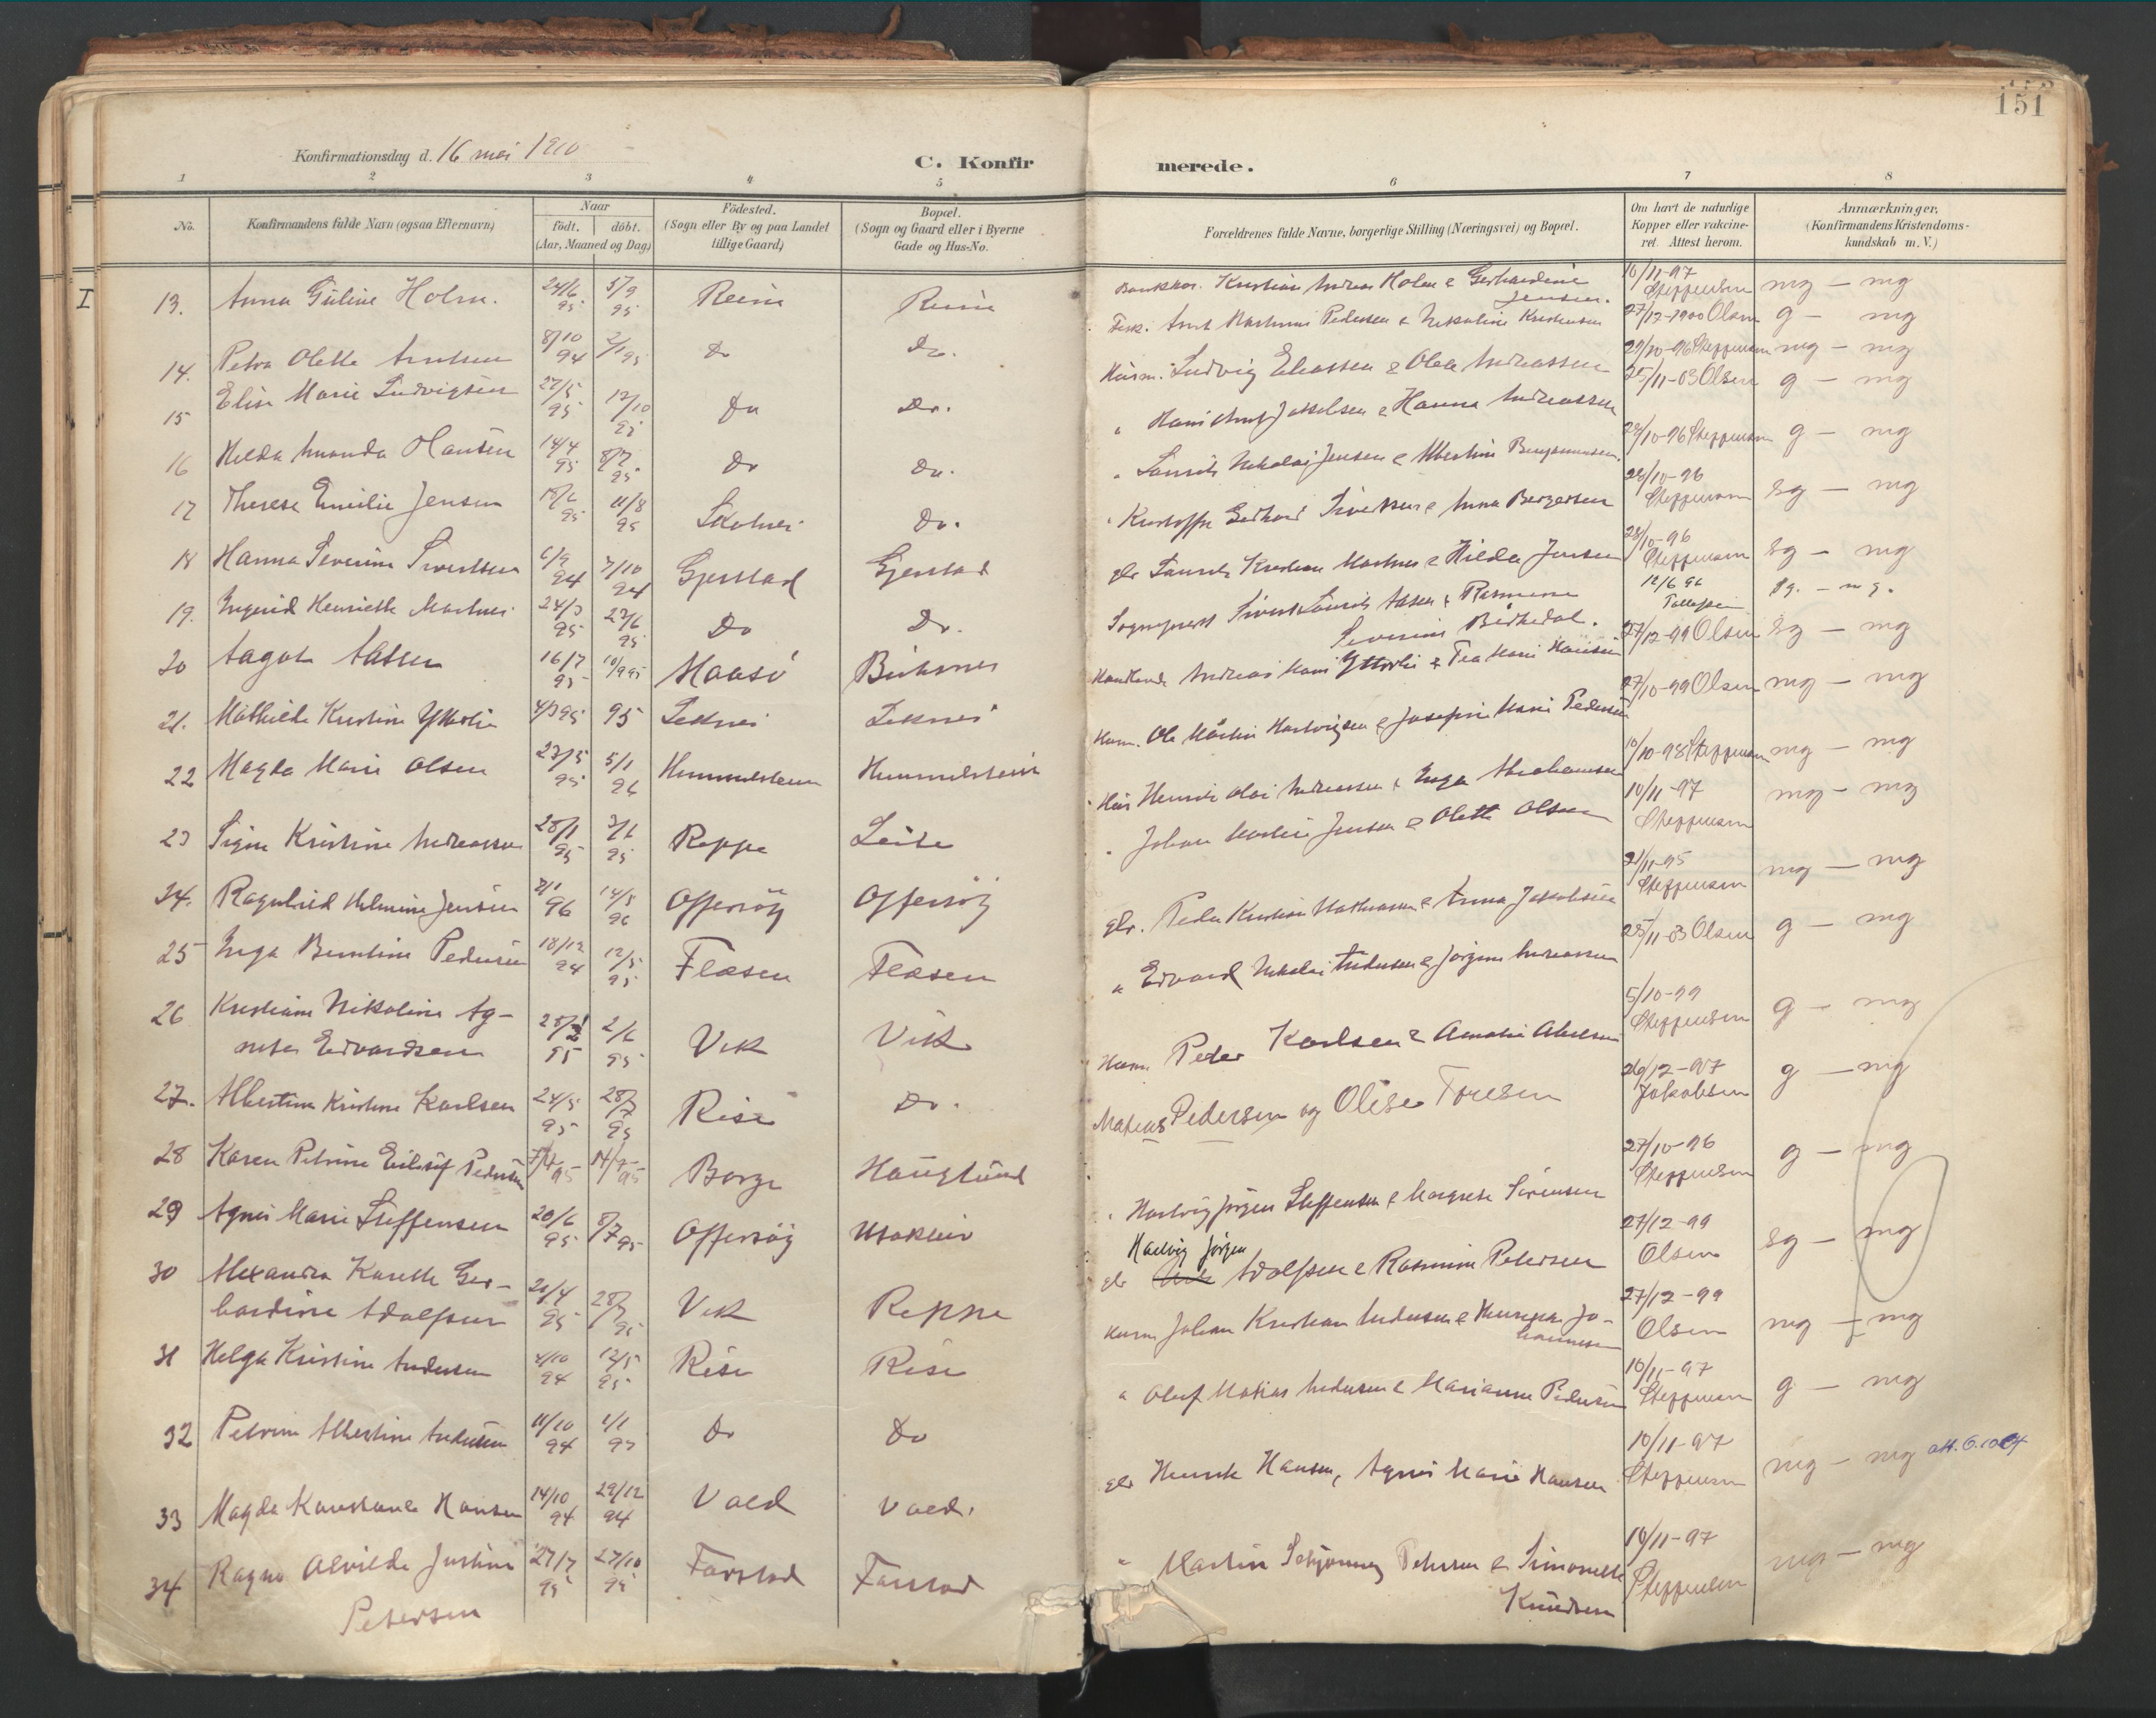 151
Konfirmationsdag d. 16 mai 1910
C. Konfirmerede.
1 2 3 4 5 6 7 8
No.
Konfirmandens fulde Navn (ogsaa Efternavn)
Naar
født. døbt.
(Aar, Maaned og Dag)
Fødested.
(Sogn eller By og paa Landet
tillige Gaard)
Bopæl.
(Sogn og Gaard eller i Byerne
Gade og Hus-No.
Forældrenes fulde Navne, borgerlige Stilling (Næringsvei) og Bopæl.
Om havt de naturlige
Kopper eller vakcine-
ret. Attest herom.
Anmærkninger,
(Konfirmandens Kristendoms-
kundskab m. V.)
I
13. Anna Guline Holm. 24/6 95 5/9 95 Reine Reine Kristian Andreas Holm & Gerhardine Jensen. 10/11-97 Steffensen mg - mg
14. Petra Olette Arntsen 8/10 94 2/1 95 Do Do. Fisk. Arnt Martinus Pedersen & Nikoline Kristensen 27/12-1900 Olsen g - mg
15 Elise Marie Ludvigsen 27/5 95 12/10 95 Do Do. Husm. Ludvig Eliassen & Olea Andreassen 29/10-96 Steffensen mg - mg
16 Helda Amanda Hansen 14/4 95 8/7 95 Do Do. " Hans Jakobsen & Hanna Andreassen 25/11-03 Olsen g - mg
17 Therese Emilie Jensen 18/6 95 11/8 95 Do. " Laurits Nikolai Jensen & Albertine 29/10-96 Steffensen g - mg
18 Hanna Severine Sivertsen 6/9 94 7/10 94 Gjerstad Gjerstad " Kristoffer Gerhard Sivertsen & Anna Bergersen 28/10-96 Steffensen sg - mg
19. Ingerid Henriette 24/3 95 23/6 95 Do Do. glr Laurits Kristian & Hilda Jensen 28/10-96 Steffensen sg - mg
20 Aagot Aasen 16/7 95 10/9 95 Maasö Buksnes Sogneprest Sivert Laurits Aasen & Rasmine Severine 12/6 96 Tollefsen sg. - mg.
21. Mathilde Kristine Ytterlie 4/3 95 95 Leknes Leknes Andreas Hans Ytterlie & Tea Marie Hansen 27/12-99 Olsen sg - mg
22 Magda Marie Olsen 23/5 95 5/1 96 Himmelstein Himmelstein Husm. Ole Martin Hartvigsen & Josefine Marie Pedersen 27/10-99 Olsen mg - mg
23 Signe Kristine Andreassen 28/1 95 3/6 95 Reppe Leite Hus Henrik Olai Andreassen & Inga Abrahamsen 10/10-98 Steffensen mg - mg
24. Ragnhild Helmine Jensen 2/1 96 14/5 96 Offersöy Offersöy " Johan Martin Jensen & Olette Olsen 10/11-97 Steffensen mg - mg
25 Inga Berntine Pedersen 18/12 94 12/5 95 Flæsen Flæsen glr. Peder Kristian & Anna Jakobsen 21/11-95 Steffensen mg - mg
26 Kristiane Nikoline Ag-
netes Edvardsen 95 2/6 95 Vik Vik " Edvard Nikolai Andersen & Jörgine Andreassen 25/11-03 Olsen g - mg
27. Albertine Kristine Karlsen 24/5 95 28/7 95 Rise Do. Husm Peder Karlsen & Amalie 5/10-99 Steffensen g - mg
28 Karen Petrine Pedersen 7/4 95 14/7 95 Borge Hauglund Mateus Pedersen og Olise Toresen 26/12-97 Jakobsen g - mg
29 Agnes Marie Steffensen 20/6 95 8/7 95 Offersöy Utakleiv " Hartvig Jörgen Steffensen & Margrete Sörensen 27/10-96 Steffensen g - mg
30 Alexandra Karette Ger-
hardine Adolfsen 21/4 95 28/7 95 Vik Reppe glr Hartvig Jörgen Adolfsen & Rasmine Petersen 27/12-99 Olsen sg - mg
31 Helga Kristine Andersen 4/10 94 12/5 95 Rise Rise Husm Johan Kristian Andersen & Jo-
hannessen 27/12-99 Olsen mg - mg
32 Petrine Albertine Andersen 11/10 94 1/1 95 Do Do " Oluf Matias Andersen & Marianne Pedersen 10/11-97 Steffensen g - mg
33 Magda Konstanse Hansen 14/10 94 29/12 94 Vold Vold. glr Henrik Hansen, Agnes Marie Hansen 10/11-97 Steffensen mg - mg
34 Ragna Alvilde Justine
Petersen 27/7 95 27/10 95 Farstad Farstad " Martin Schjönning Petersen & Simonette
Knudsen 10/11-97 Steffensen mg - mg